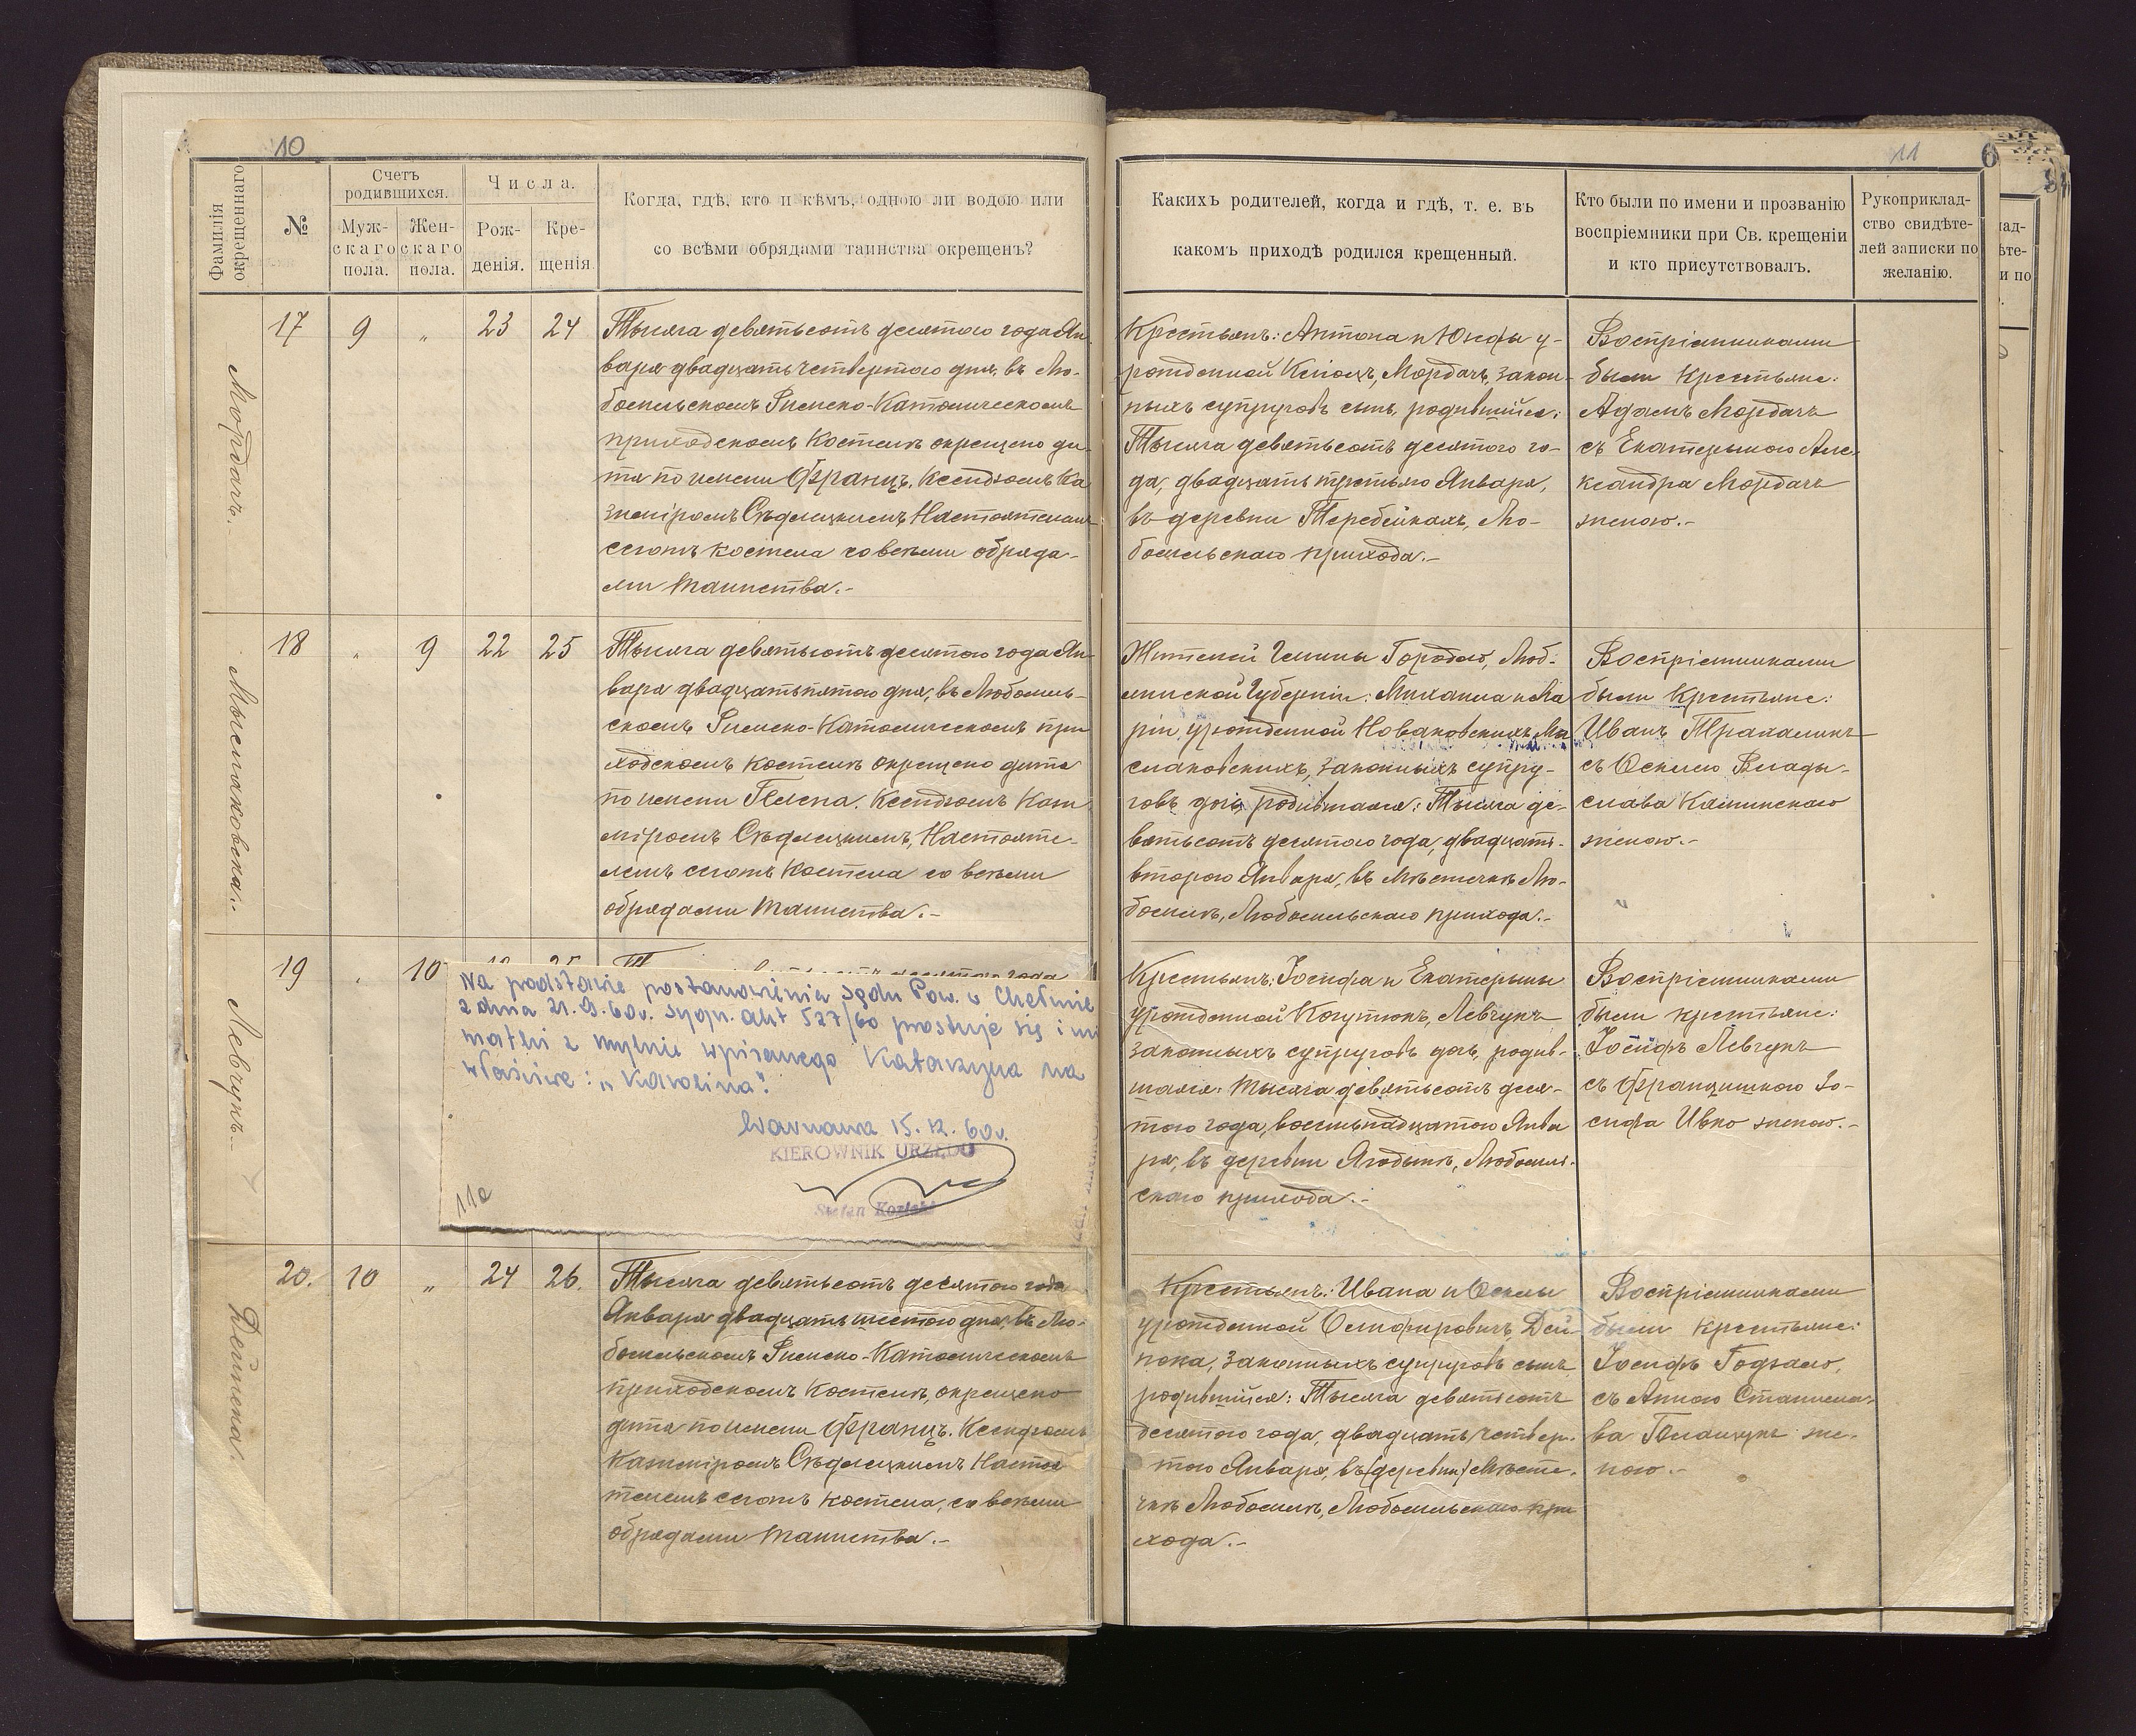 10
Фамилія окрещеннаго
№
Счетъ родившихся.
Муж-скаго пола.
Жен-скаго пола.
Числа.
Рож-денія.
Кре-щенія
Когда, гдѣ, кто и кѣмъ, одною ли водою или
со всѣми обрядами таинства окрещенъ?
Мордачъ.
17 9 „ 23 24
Тысяча девятьсотъ десятого года Ян
варя двадцать четвертого дня, въ Лю-
бомльскомъ Римско-Католическомъ
приходскомъ Костелѣ окрещено ди
тя по имени Францъ. Ксендзомъ Ка
зиміромъ Сѣдлецкимъ Настоятелемъ
сегожъ костела со всѣми обряда-
ми таинства.-
18 „ 9 22 25
Тысяча девятьсотъ десятого года Ян
варя двадцать пятого дня, въ Любомль-
скомъ Римско-Католическомъ при
ходскомъ костелѣ окрещено дитя
по имени Гелена. Ксендзомъ Кази
міромъ Сѣдлецкимъ, Настояте-
лемъ сегожъ Костела со всѣми
обрядами таинства.-
Левчукъ.-
19 „ 10
десятого года
Na podstawie postanowienia Sądu Pow. w Chełmie
z dnia 21.9.60r. sygn. akt 527/60 prostuje się imi
matki z mylnie wpisanego Katarzyna na
właściwe: „Karolina".
Warszawa 15.12.60r.
KIEROWNIK URZĘDU
Stefan
11a
Дейнека.
20. 10 „ 24 26.
Тысяча девятьсотъ десятого года
Января двадцать шестого дня, въ Лю-
бомльскомъ Римско-Католическомъ
приходскомъ Костелѣ, окрещено
дитя по имени Францъ. Ксендзомъ
Казиміромъ Сѣдлецкимъ Настоя
телемъ сегожъ костела, со всѣми
обрядами таинства.-
11
6
Какихъ родителей, когда и гдѣ, т. е. въ
какомъ приходѣ родился крещенный.
Кто были по имени и прозванію
воспріемники при Св. крещеніи
и кто присутствовалъ.
Рукоприклад-
ство свидѣте-
лей записки по
желанію.
Крестьянъ: Антона и Юзефы у-
рожденной Мордачъ, закон-
ныхъ супруговъ сынъ, родившійся:
Тысяча девятьсотъ десятого го-
да, двадцать третьяго Января,
въ деревни Теребейкахъ, Лю-
бомльскаго прихода.-
Воспріемниками
были Крестьяне:
Адамъ Мордачъ
съ Екатериною Але-
ксандра Мордачъ
женою.-
Жителей Гмины Люб-
линской Губерніи: Михаила и Ма
ріи, урожденной Новаковскихъ,
законныхъ супру-
говъ дочь, родившаяся: Тысяча де-
вятьсотъ десятого года, двадцать-
второго Января, въ Мѣстечкѣ Лю-
бомлѣ, Любомльскаго прихода.-
Воспріемниками
были Крестьяне:
Иванъ
съ Влады-
слава Калинскаго
женою.-
Крестьянъ: Іосифа и Екатерины
урожденной Когутюкъ, Левчукъ
законныхъ супруговъ дочь, родив-
шаяся: тысяча девятьсотъ деся-
того года, восемьнадцатого Янва
ря, въ деревни Ягодынѣ, Любомль-
скаго прихода.-
Воспріемниками
были крестьяне:
Іосифъ Левчукъ
съ Францишкою Іо-
сифа Ивко женою.-
Крестьянъ: Ивана и
урожденной Дей-
нека, законныхъ супруговъ сынъ,
родившійся: Тысяча девятьсотъ
десятого года, двадцать четвер-
того Января, въ (деревни) Мѣсте-
чкѣ Любомлѣ, Любомльскаго при
хода.-
Воспріемниками
были Крестьяне:
Іосифъ
съ Анною Станисла-
ва же-
ною.-